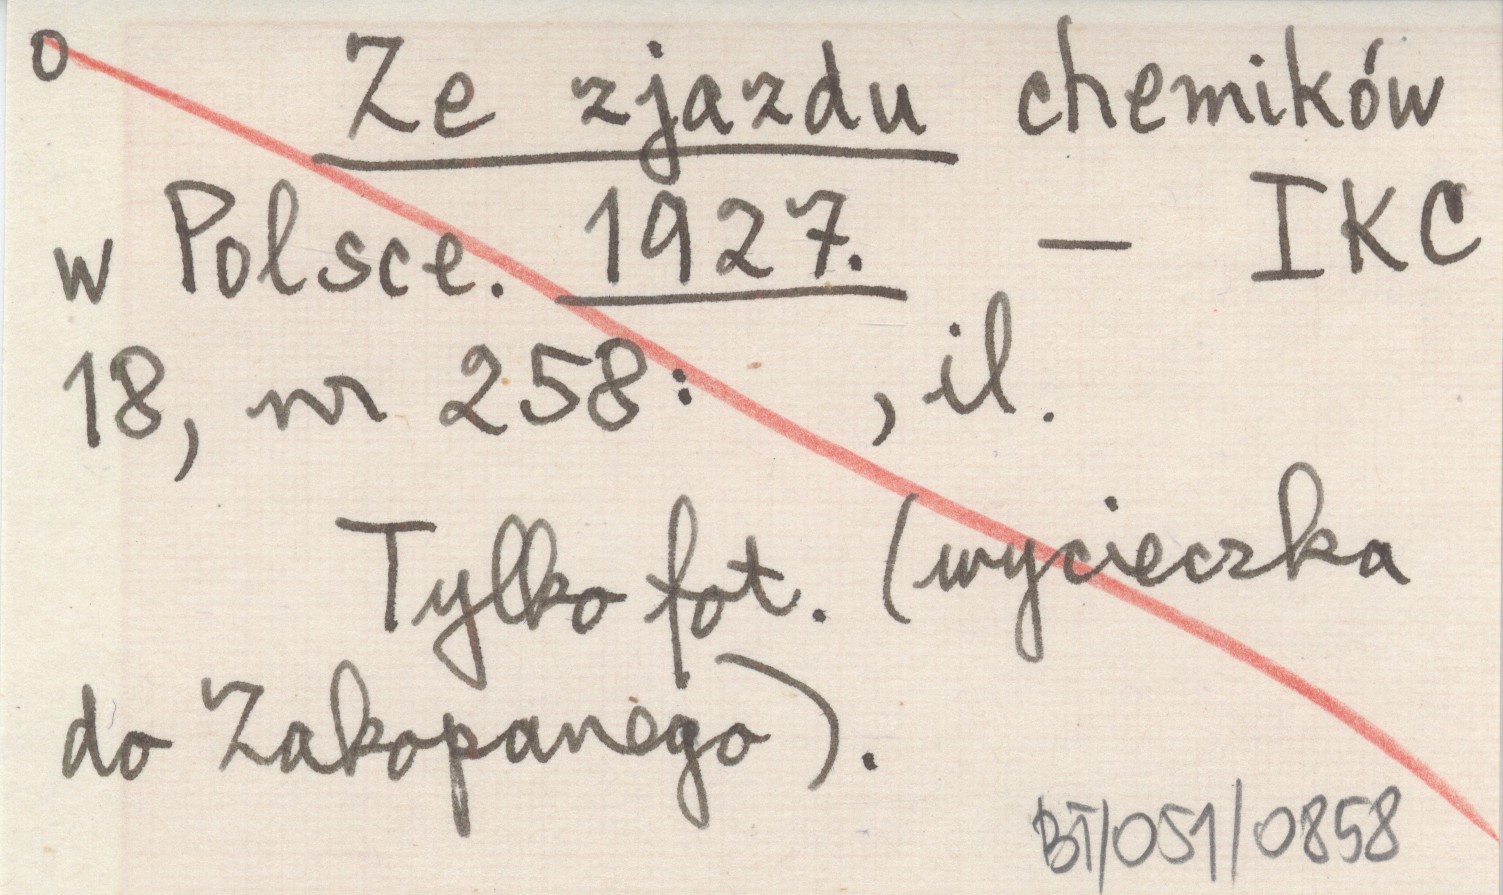 o Ze zjazdu chemików
w Polsce. 1927. — IKC
18, nr 258: , il.
Tylko fot. (wycieczka
do Zakopanego).
BT/051/0858